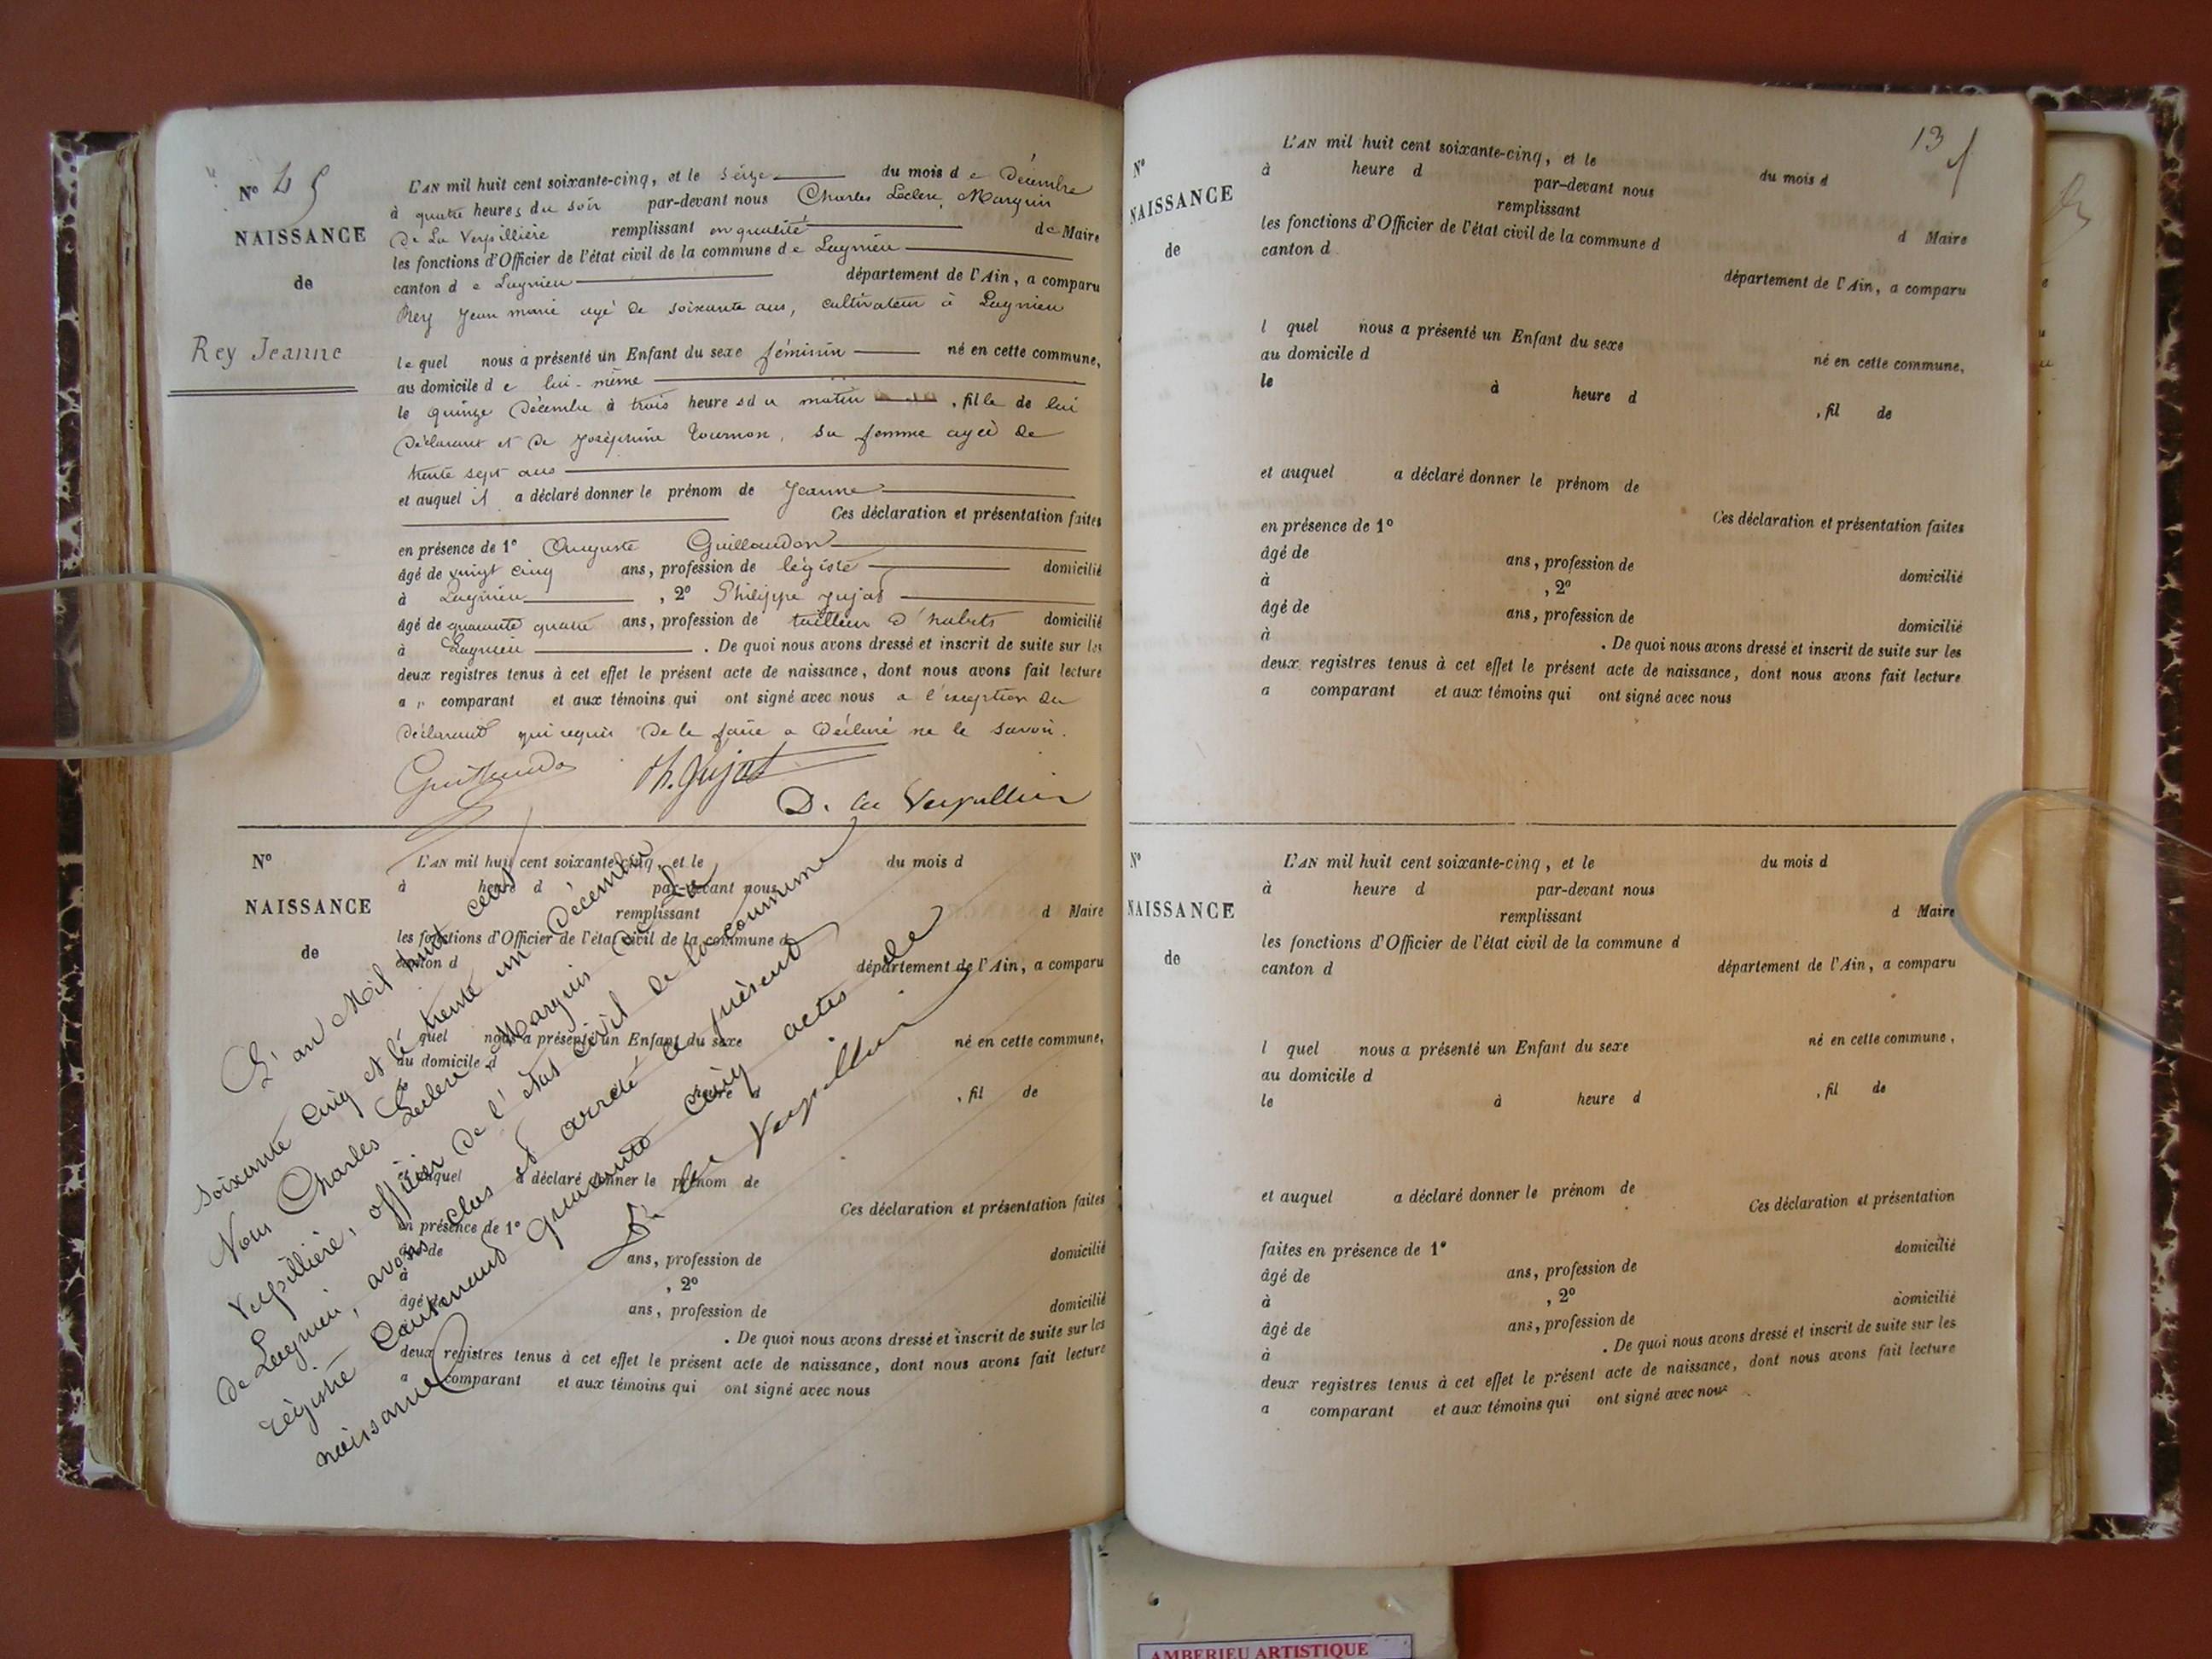 N° 45
NAISSANCE
de
Rey Jeanne
L'AN mil huit cent soixante-cinq, et le seize du mois de Décembre
à quatre heures du soir par-devant nous Charles Leclerc, Marquis
De La Verpillière remplissant en qualité de Maire
les fonctions d'Officier de l'état civil de la commune de Lagnieu
canton de Lagnieu département de l'Ain, a comparu
Rey Jean marie agé de soixante ans, cultivateur à Lagnieu
lequel nous a présenté un Enfant du sexe féminin né en cette commune,
au domicile de lui-même
le quinze Décembre à trois heures du matin, fille de lui
déclarant et de Joséphine Tournon, sa femme agée de
trente sept ans
et auquel il a déclaré donner le prénom de Jeanne
Ces déclaration et présentation faites
en présence de 1° Auguste Guillaudon
âgé de vingt cinq ans, profession de légiste domicilié
à Lagnieu, 2° Philippe Jujat
âgé de quarante quatre ans, profession de tailleur d'habits domicilié
à Lagnieu. De quoi nous avons dressé et inscrit de suite sur les
deux registres tenus à cet effet le présent acte de naissance, dont nous avons fait lecture
a u comparant et aux témoins qui ont signé avec nous a l'exception du
déclarant qui requis de le faire a déclaré ne le savoir.
Ph. Jujat
D. la Verpillière
N°
NAISSANCE
de
L'AN mil huit cent soixante-cinq, et le du mois d
à heure d par-devant nous
remplissant d Maire
les fonctions d'Officier de l'état civil de la commune d
canton d département de l'Ain, a comparu
quel nous a présenté un Enfant du sexe né en cette commune,
au domicile d
heure d , fil de
et auquel a déclaré donner le prénom de
Ces déclaration et présentation faites
en présence de 1°
âgé de ans, profession de domicilié
à , 2°
âgé de ans, profession de domicilié
. De quoi nous avons dressé et inscrit de suite sur les
deux registres tenus à cet effet le présent acte de naissance, dont nous avons fait lecture
a comparant et aux témoins qui ont signé avec nous
L'an Mil huit cent
soixante cinq et le trente un Décembre
Nous Charles Leclerc Marquis de La
Verpillière, officier de l'état civil de la commune
de Lagnieu, avons clos et arrêté le présent
registre contenant quarante cinq actes de
naissance
D. la Verpillière
13
N°
NAISSANCE
de
L'AN mil huit cent soixante-cinq, et le du mois d
à heure d par-devant nous
remplissant d Maire
les fonctions d'Officier de l'état civil de la commune d
canton d département de l'Ain, a comparu
l quel nous a présenté un Enfant du sexe né en cette commune,
au domicile d
le à heure d , fil de
et auquel a déclaré donner le prénom de
Ces déclaration et présentation faites
en présence de 1°
âgé de ans, profession de domicilié
à , 2°
âgé de ans, profession de domicilié
à . De quoi nous avons dressé et inscrit de suite sur les
deux registres tenus à cet effet le présent acte de naissance, dont nous avons fait lecture
a comparant et aux témoins qui ont signé avec nous
N°
NAISSANCE
de
L'AN mil huit cent soixante-cinq, et le du mois d
à heure d par-devant nous
remplissant d Maire
les fonctions d'Officier de l'état civil de la commune d
canton d département de l'Ain, a comparu
l quel nous a présenté un Enfant du sexe né en cette commune,
au domicile d
le à heure d , fil de
et auquel a déclaré donner le prénom de
Ces déclaration et présentation
faites en présence de 1° domicilié
âgé de ans, profession de
à , 2° domicilié
âgé de ans, profession de
à . De quoi nous avons dressé et inscrit de suite sur les
deux registres tenus à cet effet le présent acte de naissance, dont nous avons fait lecture
a comparant et aux témoins qui ont signé avec nous
AMBERIEU ARTISTIQUE